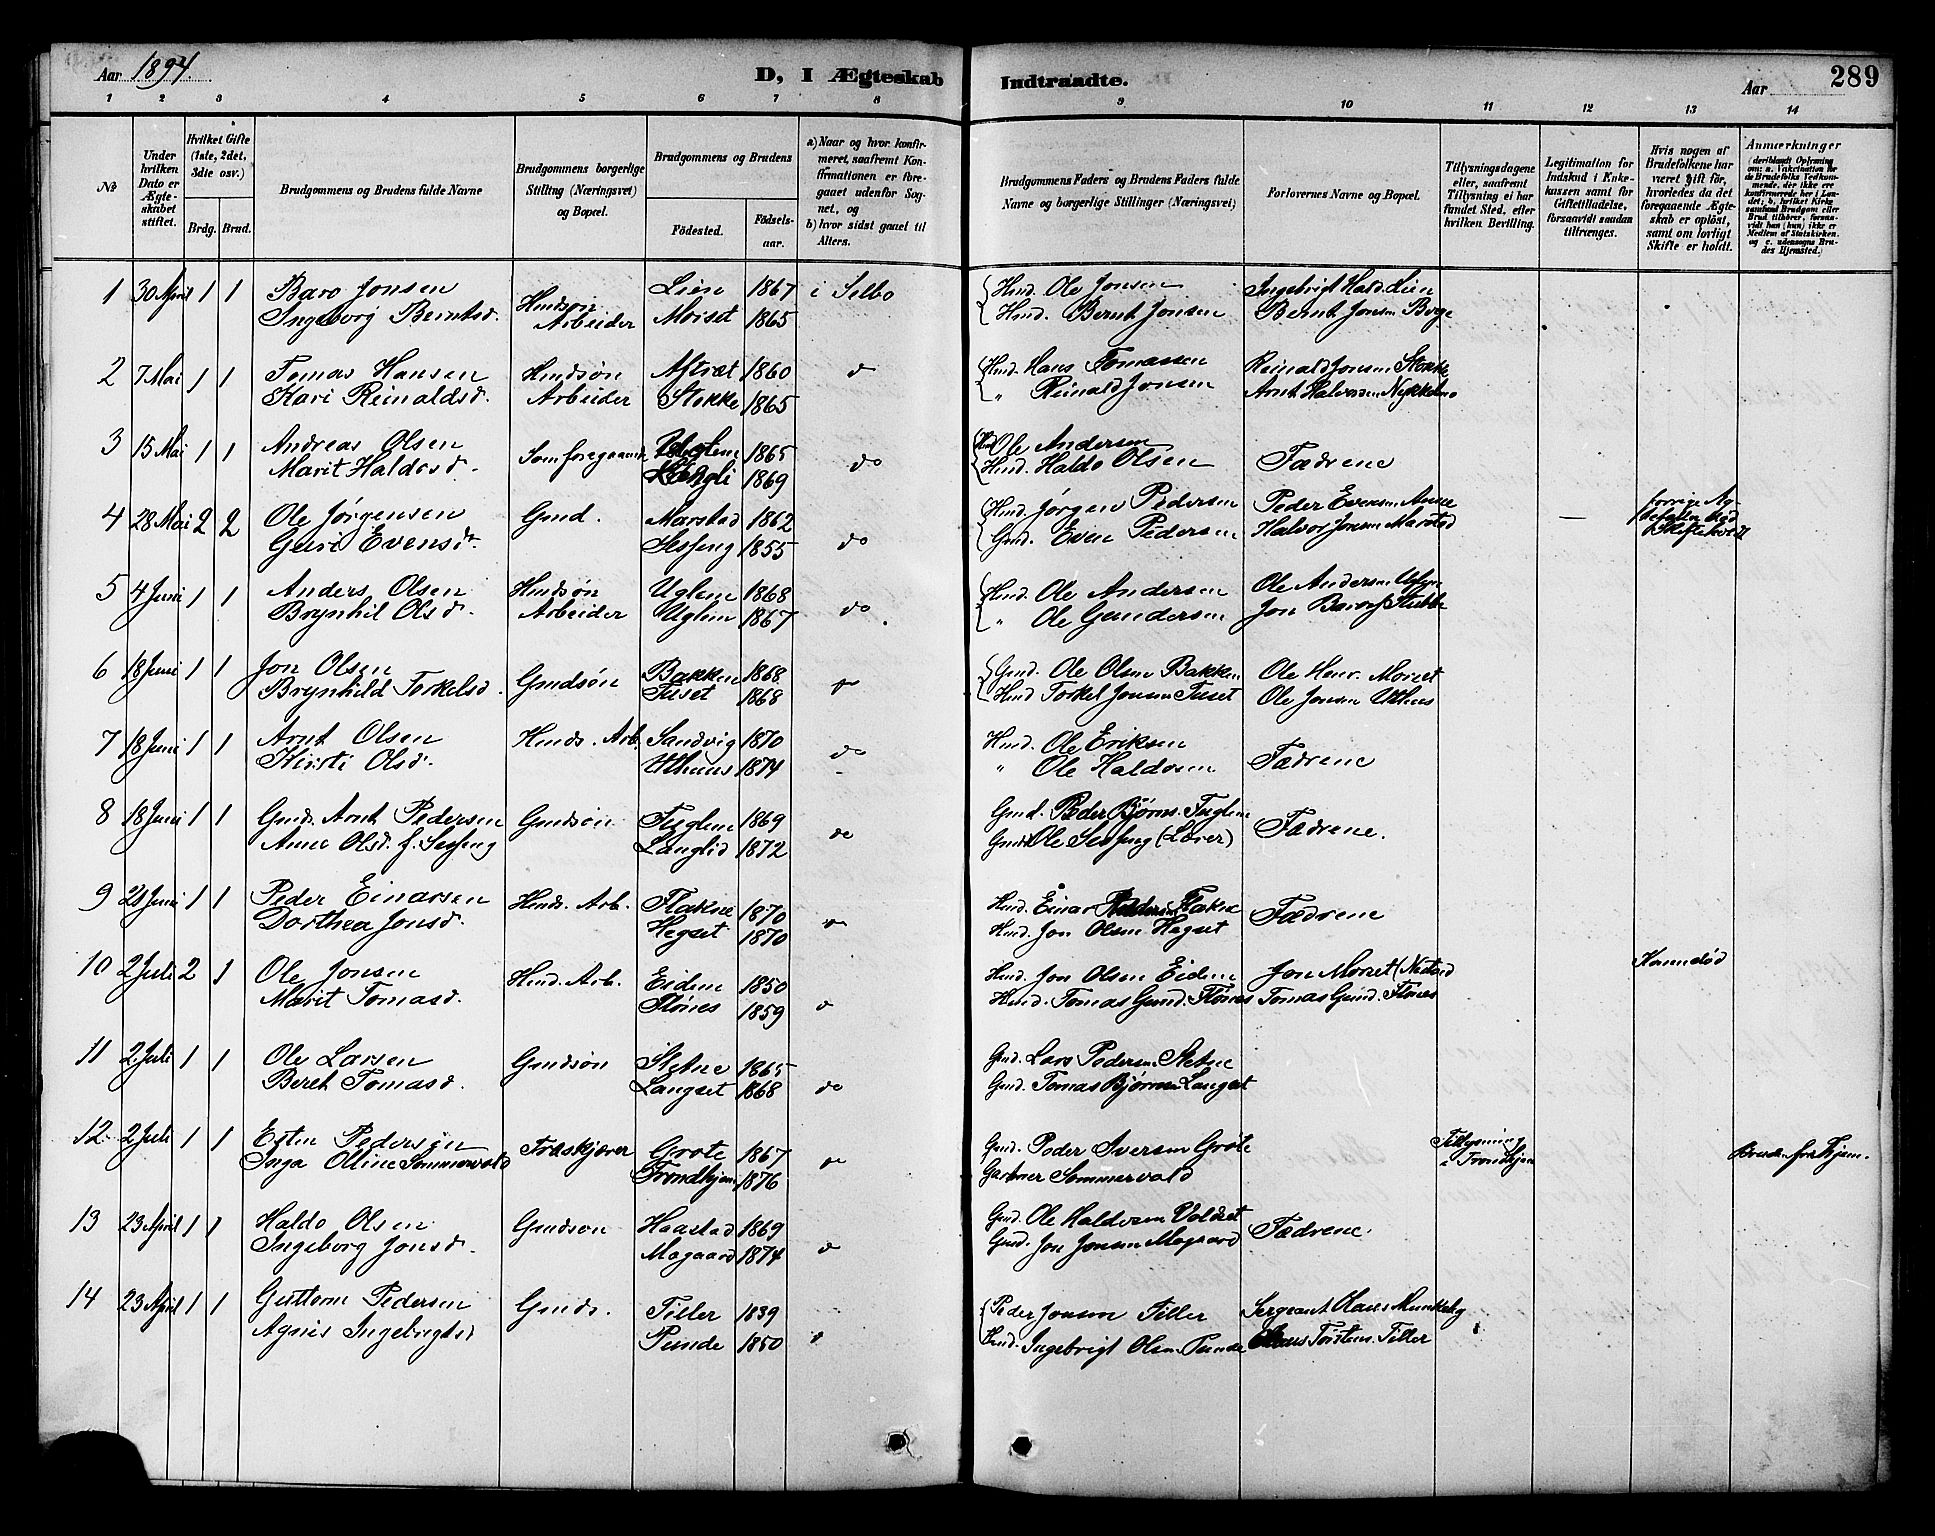 Aar 1894. D, I Ægteskab Indtraadte. Aar 289
1 2 3 4 5 6 7 8 9 10 11 12 13 14
№
Under hvilken Dato er Ægteskabet stiftet.
Hvilket Gifte (1ste, 2det, 3die osv.)
Brdg. Brud.
Brudgommens og Brudens fulde Navne
Brudgommens borgerlige Stilling (Næringsvei) og Bopæl.
Brudgommens og Brudens
Fødested. Fødselsaar.
a) Naar og hvor konfirmeret, saafremt Konfirmationen er foregaaet udenfor Sognet, og
b) hvor sidst gaaet til Alters.
Brudgommens Faders og Brudens Faders fulde Navne og borgerlige Stillinger (Næringsvei)
Forlovernes Navne og Bopæl.
Tillysningsdagene eller, saafremt Tillysning ei har fundet Sted, efter hvilken Bevilling.
Legitimation for Indskud i Enkekassen samt for Giftetilladelse, forsaavidt saadan tiltrænges.
Hvis nogen af Brudefolkene har været gift før, hvorledes da det foregaaende Ægteskab er opløst, samt om lovligt Skifte er holdt.
Anmærkninger
(deriblandt Oplysning om: a. Vaksination for de Brudefolks Vedkommende, der ikke ere konfirmerede her i Landet; b. hvilket Kirkesamfund Brudgom eller Brud tilhører, forsaavidt han (hun) ikke er Medlem af Statskirken. og c. udensogns Brudes Hjemsted.)
1 30 April 1 1 Baro Jonsen Husmdsøn Lien 1867 i Selbo Husmd. Ole Jonsen Ingebrigt Hald. Lien
Ingeborg Berntsd. Arbeider Moiset 1865 Husmd. Bernt Jonsen Bernt Jonsen Borge
2 7 Mai 1 1 Tomas Hansen Husmdsøn Aftret 1860 do Husmd. Hans Tomassen Reinald Jonsen Stokke
Kari Reinaldsd. Arbeider Stokke 1865 " Reinald Jonsen Arnt Halvorsen Nykkelmo
3 15 Mai 1 1 Andreas Olsen Som foregaaende Uglem 1865 do Ole Andersen
Marit Haldosd. 1869 Husmd. Haldo Olsen Fædrene
4 28 Mai 2 2 Ole Jørgensen Gmd. Marstad 1862 Husmd. Jørgen Pedersen Peder Evensen — forrige Æg-
Guri Evensd. Sesseng 1855 do Gmd. Even Pedersen Halvor Jonsen Marstad
5 4 Juni 1 1 Anders Olsen Husmdsøn Uglem 1868 Husmd. Ole Andersen Ole Andersen Uglem
Brynhil Olsd. Arbeider Uglem 1867 do " Ole Gundersen Jon Stubbe
6 18 Juni 1 1 Jon Olsen Gmdsøn Bakken 1868. do Gmd. Ole Olsen Bakken Ole Henr. Morset
Brynhild Torkelsd. Tuset 1868 Husmd Torkel Jonsen Tuset Ole Jonsen Uthus
7 18 Juni 1 1 Arnt Olsen Husmds. Arb. Sandvig 1870 do Husmd. Ole Eriksen
Kirsti Olsd. Uthuus 1874 " Ole Haldosen Fædrene
8 18 Juni 1 1 Gmds. Arnt Pedersen Gmdsøn Fuglem 1869 do Gmd. Peder Bjørns. Fuglem
Anne Olsd. f. Sesseng Langlid 1872 Gmd. Ole Sesseng (Lærer) Fædrene.
9 1 1 Peder Einarsen Husmds. Arb. Flakne 1870 do Husmd. Einar Pedersen Flakne
Dorthea Jonsd. Hegset 1870 Husmd. Jon Olsen Hegset Fædrene
10 2 Juli 2 1 Ole Jonsen Husmd. Arb. Eidem 1850 Husmd. Jon Olsen Eidem Jon Morset (Nestad Konen død
Marit Tomasd. Flønes 1859 do Husmd. Tomas Gund. Flønes Tomas Gund. Flønes
11 2 Juli 1 1 Ole Larsen Gmdsøn Sletne 1865 Gmd. Lars Pedersen Sletne
Beret Tomasd. Langset 1868 do Gmd. Tomas Bjørnsen Langset
12 2 Juli 1 1 Esten Pedersen Træskjærer Grøte 1867 do Gmd. Peder Iversen Grøte Tillysning
Inga Oline Sommervold Trondhjem 1876 Gartner Sommervold i Trondhjem Bruden fra Thjem.
13 23 April 1 1 Haldo Olsen Gmdson Haarstad 1869 Gmd. Ole Haldosen Voldset
Ingeborg Jonsd. Mogaard 1874 do Gmd. Jon Jonsen Mogaard Fædrene.
14 23 April 1 1 Guttorm Pedersen Gmds. Tiller 1839 Peder Jonsen Tiller Sergeant Claus Munkeby
Agnes Ingebrigtsd Punde 1850 do Husmd. Ingebrigt Olsen Punde Claus Torstens. Tiller